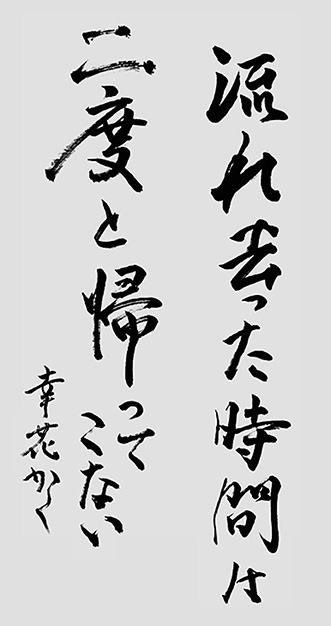 流れ去った時間は
二度と帰って
こない
幸花かく